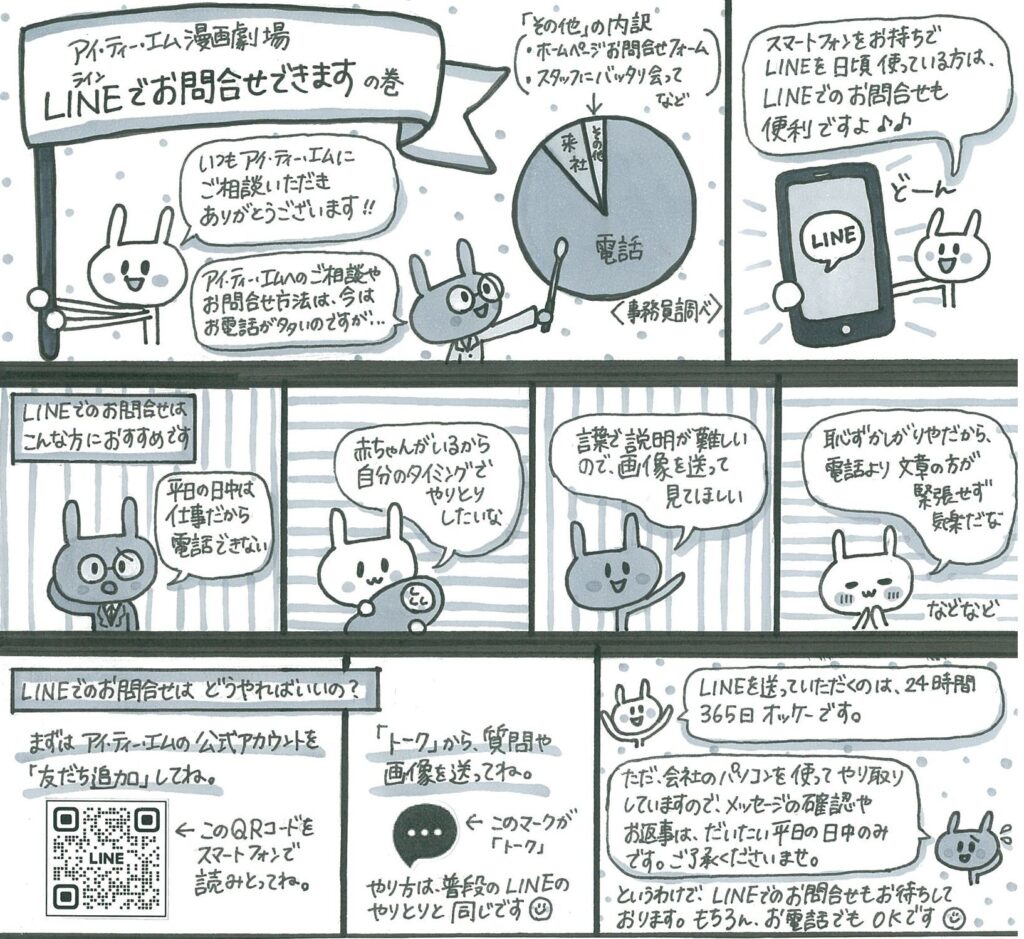 アイ・ティー・エム漫画劇場
ライン
LINEでお問合せできます の巻
「その他」の内訳
・ホームページお問合せフォーム
・スタッフにバッタリ会って
など
いつもアイ・ティー・エムに
ご相談いただき
ありがとうございます!!
アイ・ティー・エムへのご相談や
お問合せ方法は、今は
お電話が多いのですが…
来社
その他
電話
〈事務員調べ〉
スマートフォンをお持ちで
LINEを日頃使っている方は、
LINEでのお問合せも
便利ですよ♪♪
どーん
LINE
LINEでのお問合せは
こんな方におすすめです
平日の日中は
仕事だから
電話できない
赤ちゃんがいるから
自分のタイミングで
やりとり
したいな
言葉で説明が難しい
ので、画像を送って
見てほしい
恥ずかしがりやだから、
電話より文章の方が
緊張せず
気楽だな
などなど
LINEでのお問合せは どうやればいいの？
まずは アイ・ティー・エムの公式アカウントを
「友だち追加」してね。
LINE
←このQRコードを
スマートフォンで
読みとってね。
「トーク」から、質問や
画像を送ってね。
←このマークが
「トーク」
やり方は、普段のLINEの
やりとりと同じです☺
LINEを送っていただくのは、24時間
365日オッケーです。
ただ、会社のパソコンを使ってやり取り
していますので、メッセージの確認や
お返事は、だいたい平日の日中のみ
です。ご了承くださいませ。
というわけで、LINEでのお問合せもお待ちして
おります。もちろん、お電話でもOKです☺